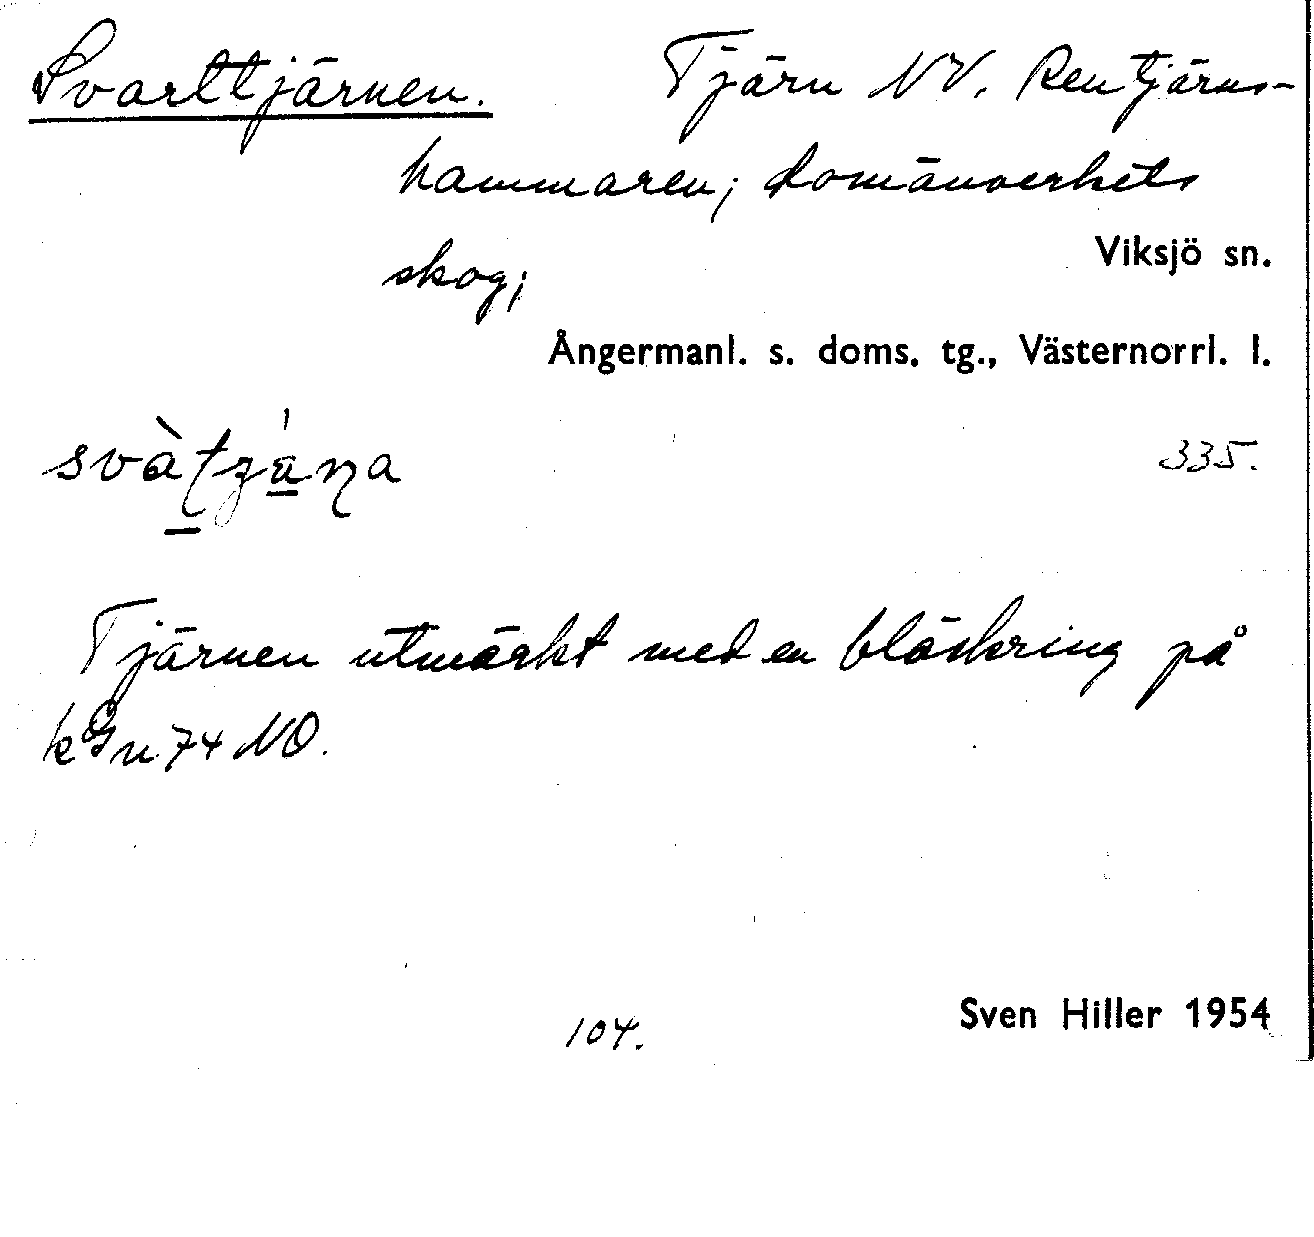 Svarttjärnen. Tjärn NV. Rentjärns-
hammaren; domänverkets
skog;
Viksjö sn.
Ångermanl. s. doms. tg., Västernorrl. l.
335.
Tjärnen utmärkt med en bläckring på
NO.
104.
Sven Hiller 1954